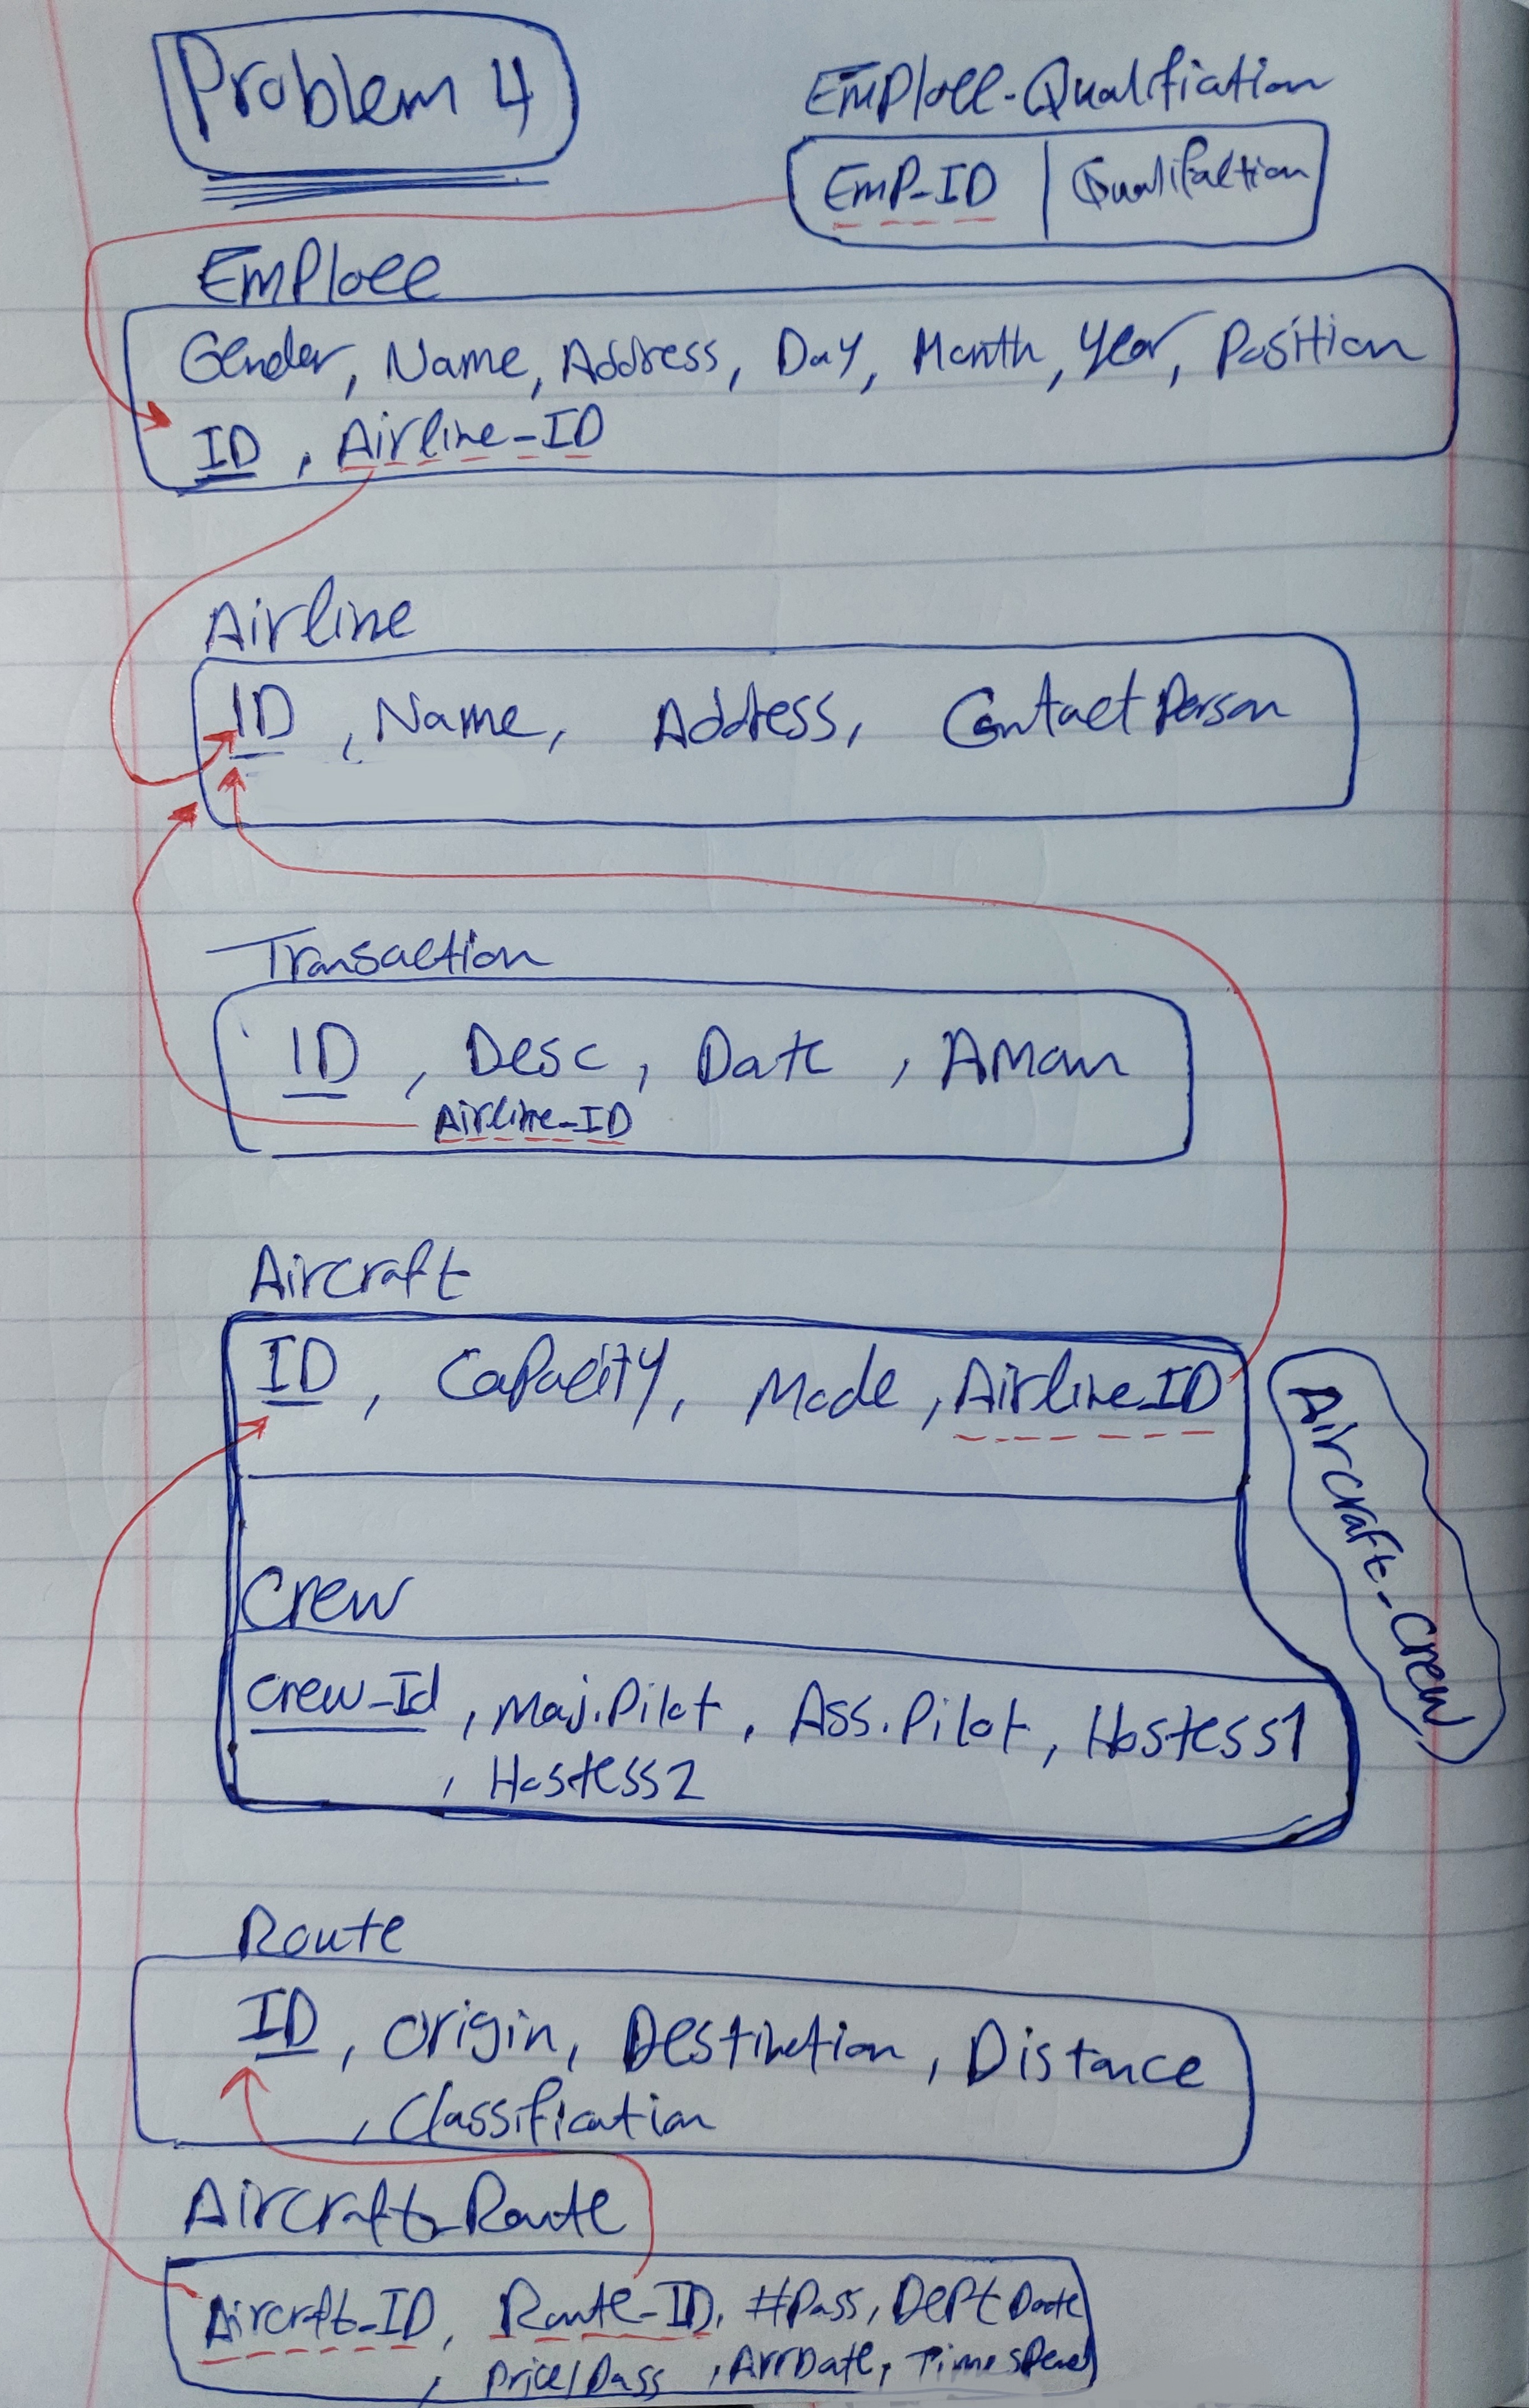 Problem 4
Emploee-Qualifiction
Emp-ID | Qualifaction
Emploee
Gender, Name, Address, Day, Month, Year, Position
ID, Airline-ID
Airline
ID, Name, Address, Contact Person
Transaction
ID, Desc, Date, Amoun
Airline-ID
Aircraft
ID, Capacity, Mode, Airline_ID
Aircraft-Crew
Crew
Crew-Id, Maj.Pilot, Ass.Pilot, Hostess1
, Hostess2
Route
ID, Origin, Destinction, Distance
, Classification
Aircraft_Route
Aircraft-ID, Route-ID, #Pass, Dept Date
, Price/Pass, ArrDate,